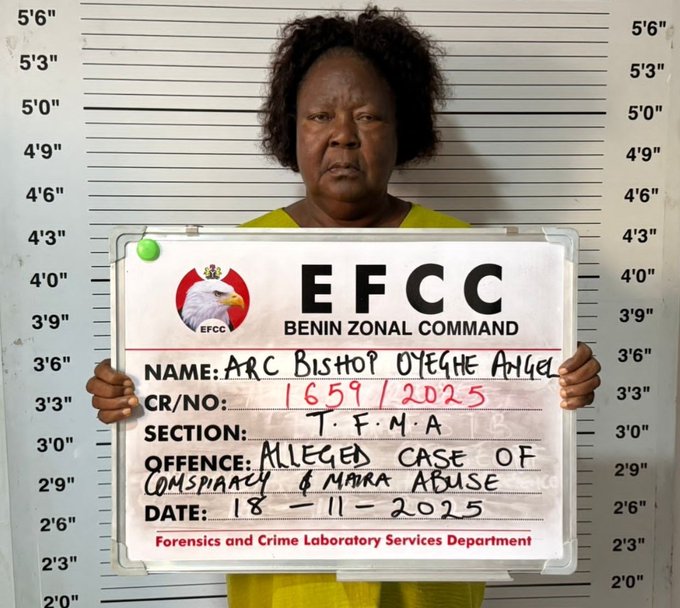 5'6"
5'3"
5'0"
4'9"
4'6"
4'3"
4'0"
3'9"
3'6"
3'3"
3'0"
2'9"
2'6"
2'3"
2'0"
EFCC
EFCC
BENIN ZONAL COMMAND
NAME: ARC BISHOP OYEGHE ANGEL
CR/NO: 1659/2025
SECTION: T.F.M.A
OFFENCE: ALLEGED CASE OF
COMSPIRACY & MAIRA ABUSE
DATE: 18-11-2025
Forensics and Crime Laboratory Services Department
5'6"
5'3"
5'0"
4'9"
4'6"
4'3"
4'0"
3'9"
3'6"
3'3"
3'0"
2'9"
2'6"
2'3"
2'0"